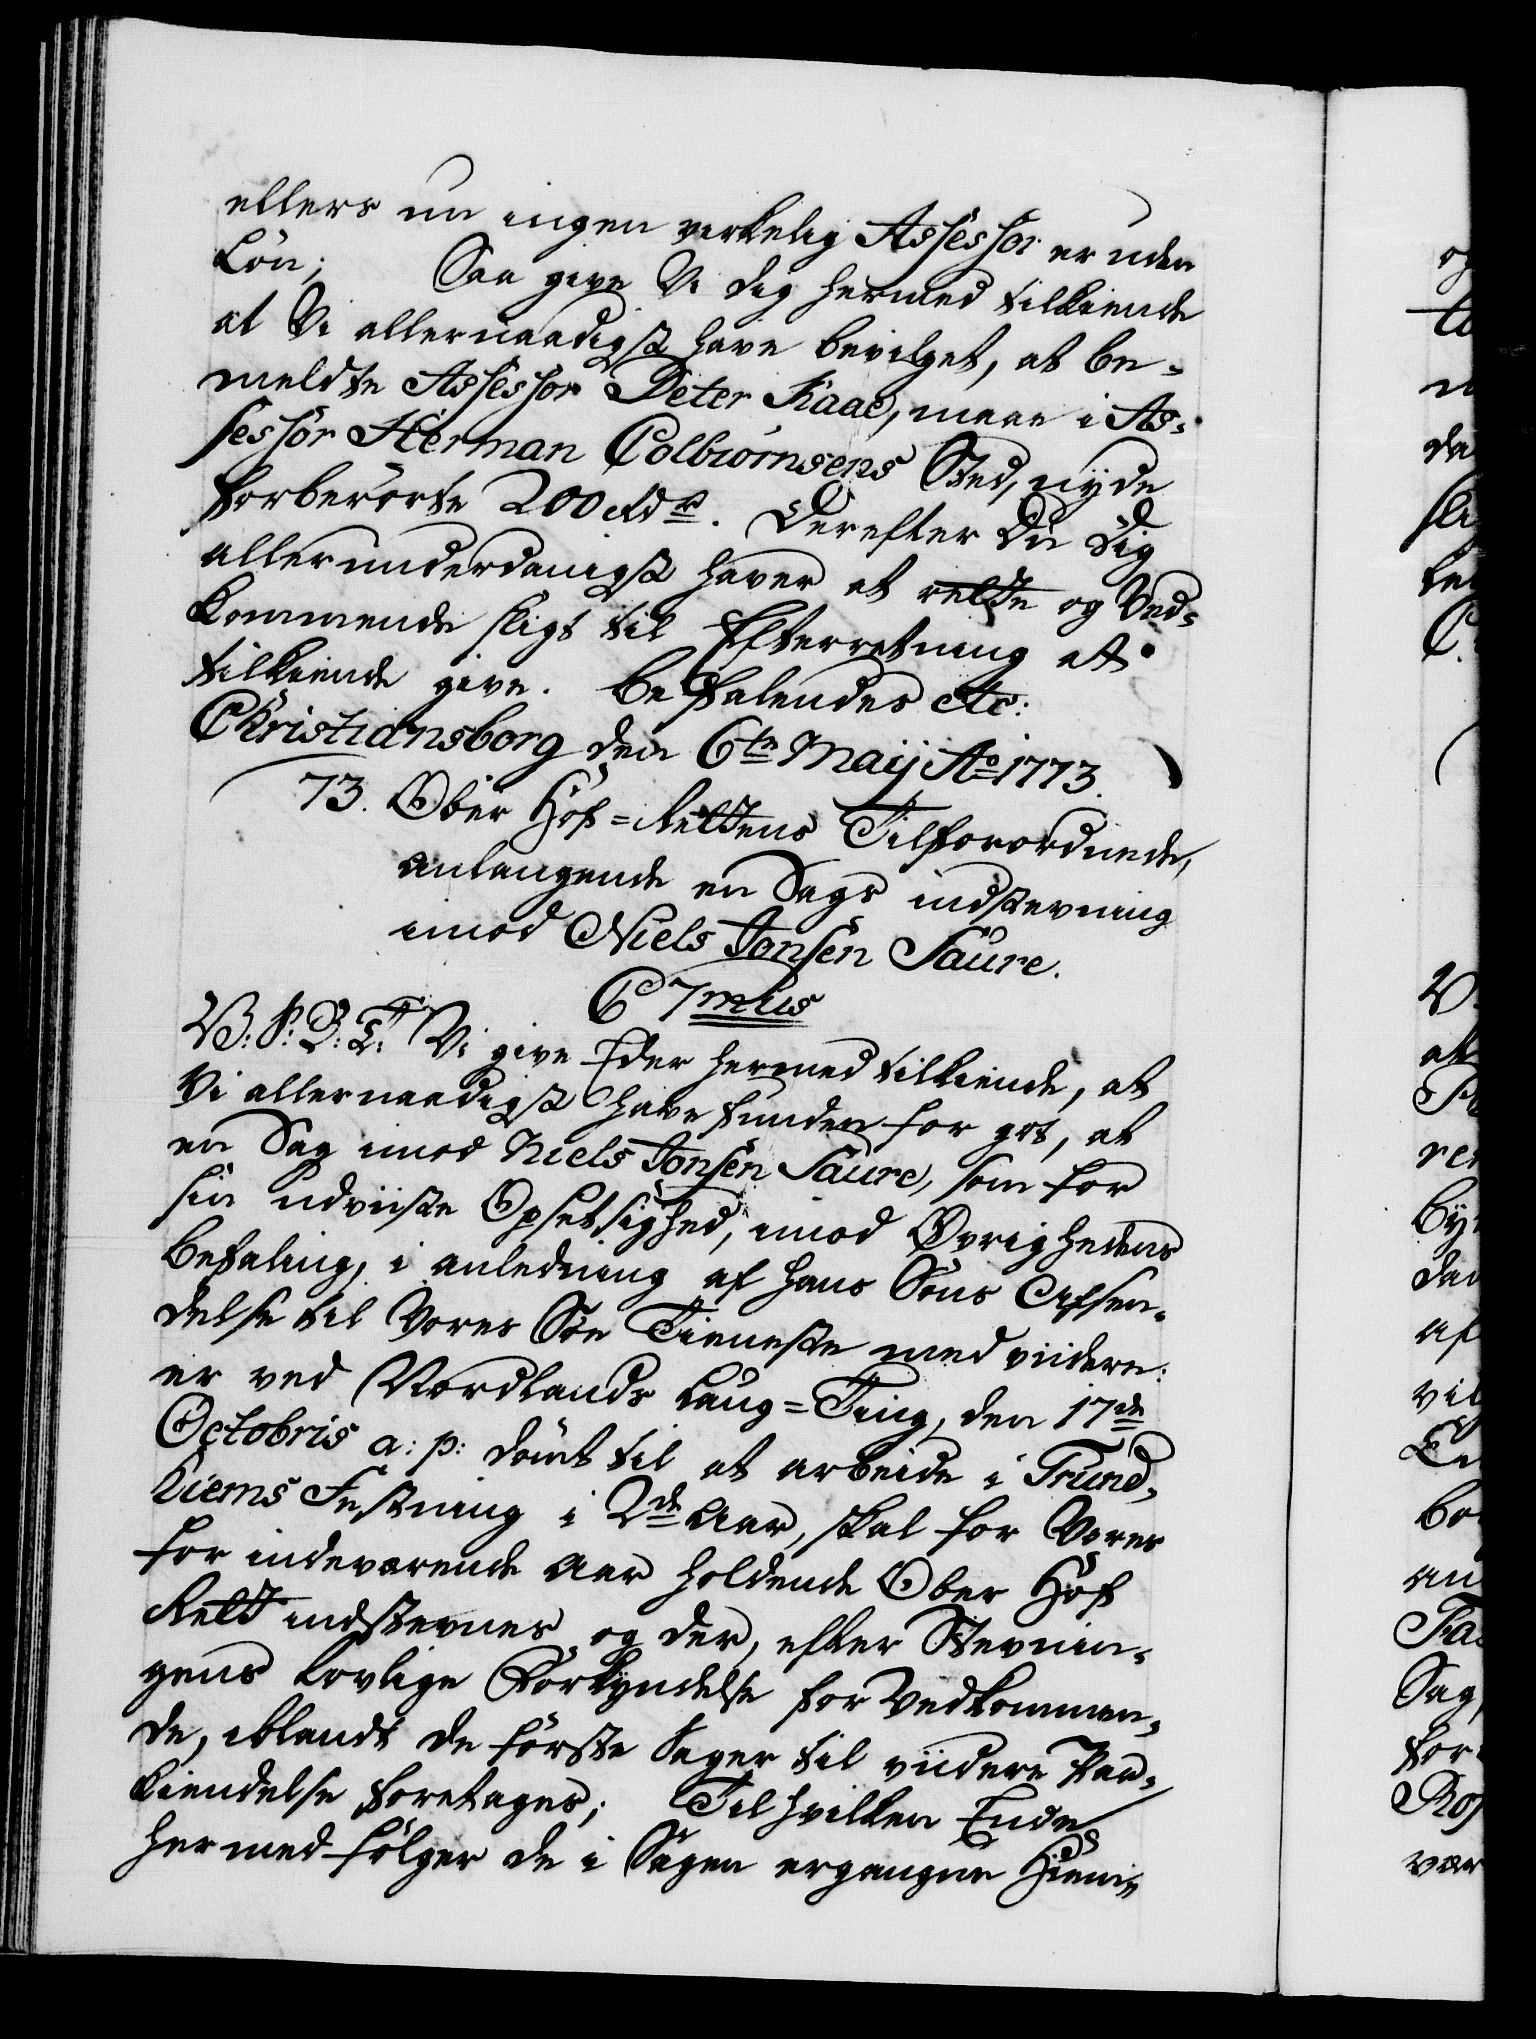 ellers nu ingen verkelig Assessor er uden
Lön; Saa give Vi dig hermed tilkiende
at Vi allernaadigst have bevilget, at be-
meldte Assessor Peter Kaae, maae i As-
sessor Herman Colbiørnsens Sted, nyde
forberörte 200 Rdr. Derefter Du dig
allerunderdanigst haver at rette og Ved-
kommende sligt til Efterretning at
tilkiende give. Befalendes etc:
Christiansborg den 6te Maij Ao 1773.
73. Ober Hof-Rettens Tilforordnede,
anlangende en Sags indstevning
imod Niels Jonsen Saure.
C 7mus
V: S: G: T: Vi give Eder hermed tilkiende, at
Vi allernaadigst have funden for got, at
en Sag imod Niels Jonsen Saure, som for
sin udviiste Opsetsighed, imod Øvrighedens
Befaling, i anledning af hans Söns Afsen-
delse til Vores Söe Tieneste med viidere:
er ved Nordlands Laug-Ting, den 17de
Octobris a: p: dömt til at arbeide i Trund-
hiems Festning i 2de Aar, skal for Vores
for indeværende Aar holdende Ober Hof
Rett indstevnes og der, efter Stevnin-
gens lovlige Forkyndelse for Vedkommen-
de, iblandt de förste Sager til viidere Paa-
kiendelse foretages; Til hvilken Ende
hermed fölger de i Sagen ergangne Hiem-